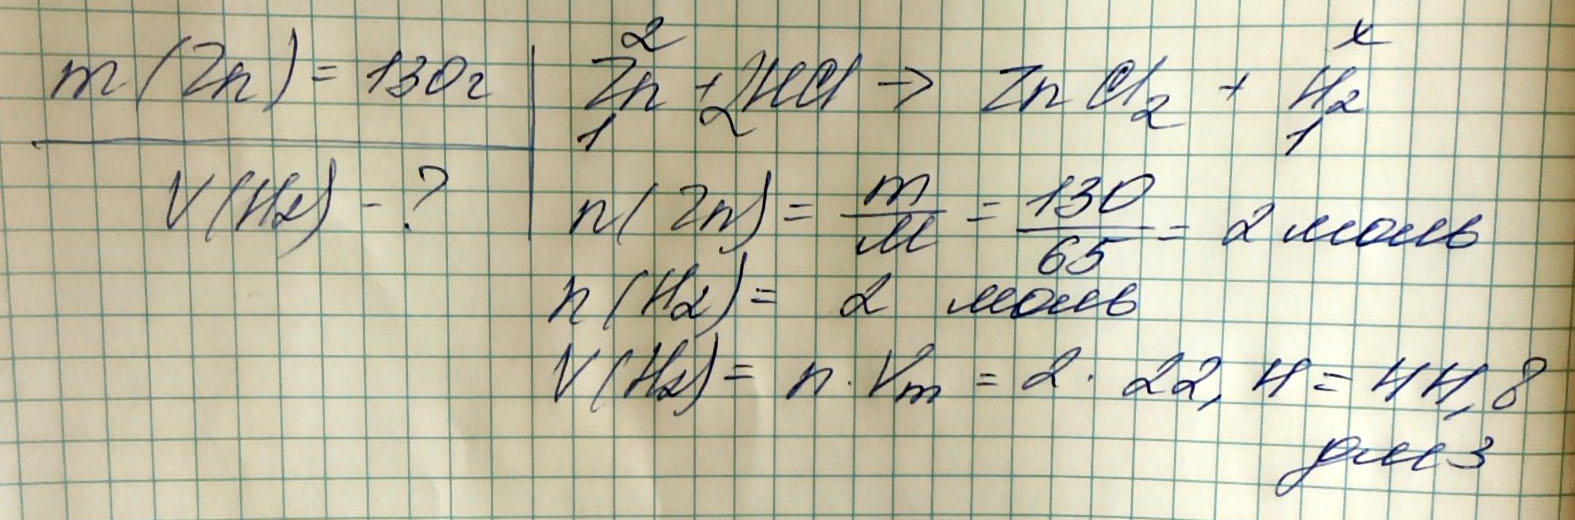 m(Zn) = 130г
V(H2) - ?
2 x
Zn + 2HCl → ZnCl2 + H2
1 1
n(Zn) = m/M = 130/65 = 2 моль
n(H2) = 2 моль
V(H2) = n · Vm = 2 · 22,4 = 44,8
дм3